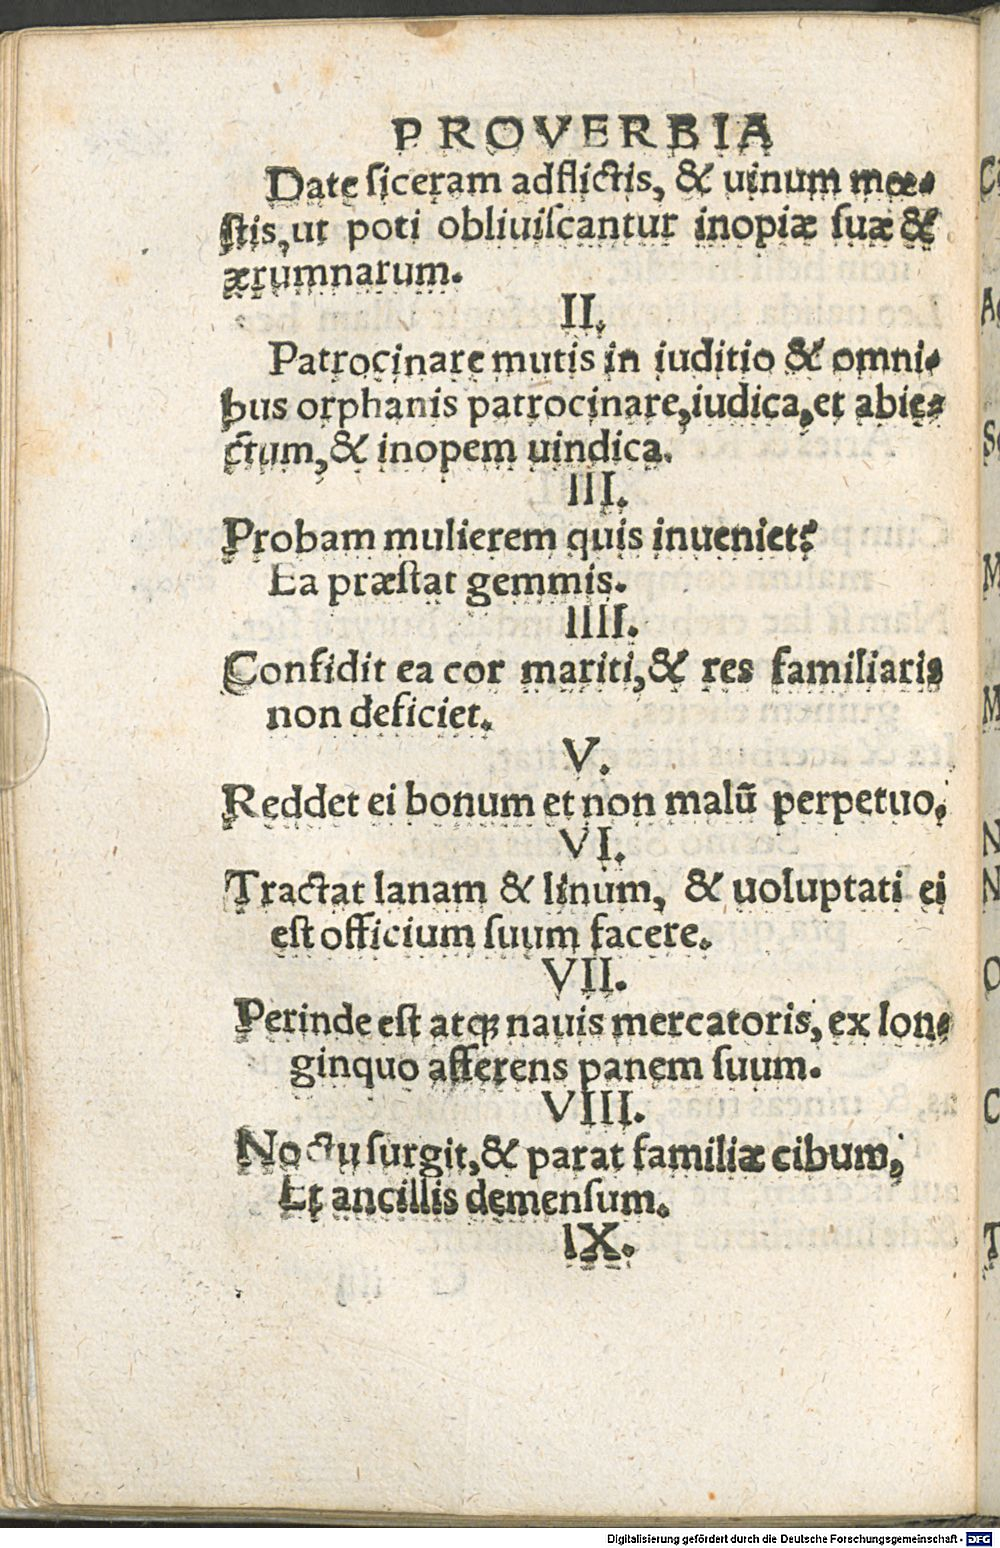 PROVERBIA
Date siceram adflictis, & uinum moe-
stis, ut poti obliuiscantur inopiæ suæ &
ærumnarum.
II.
Patrocinare mutis in iuditio & omni-
bus orphanis patrocinare, iudica, et abie-
ctum, & inopem uindica.
III.
Probam mulierem quis inueniet?
Ea præstat gemmis.
IIII.
Confidit ea cor mariti, & res familiaris
non deficiet.
V.
Reddet ei bonum et non malū perpetuo,
VI.
Tractat lanam & linum, & uoluptati ei
est officium suum facere.
VII.
Perinde est atq; nauis mercatoris, ex lon-
ginquo afferens panem suum.
VIII.
Noctu surgit, & parat familiæ cibum,
Et ancillis demensum.
IX.
Digitalisierung gefördert durch die Deutsche Forschungsgemeinschaft - DFG